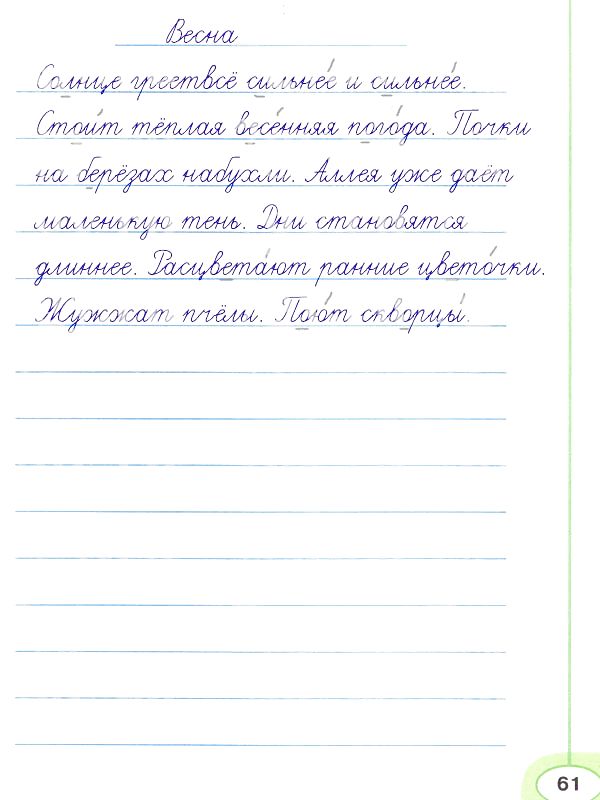 Весна
Солнце греетвсё сильне́е и сильне́е.
Стои́т тёплая весе́нняя пого́да. Почки
на берёзах набухли. Аллея уже даёт
маленькую тень. Дни становятся
длиннее. Расцвета́ют ранние цвето́чки.
Жужжат пчёлы. Пою́т скворцы́.
61